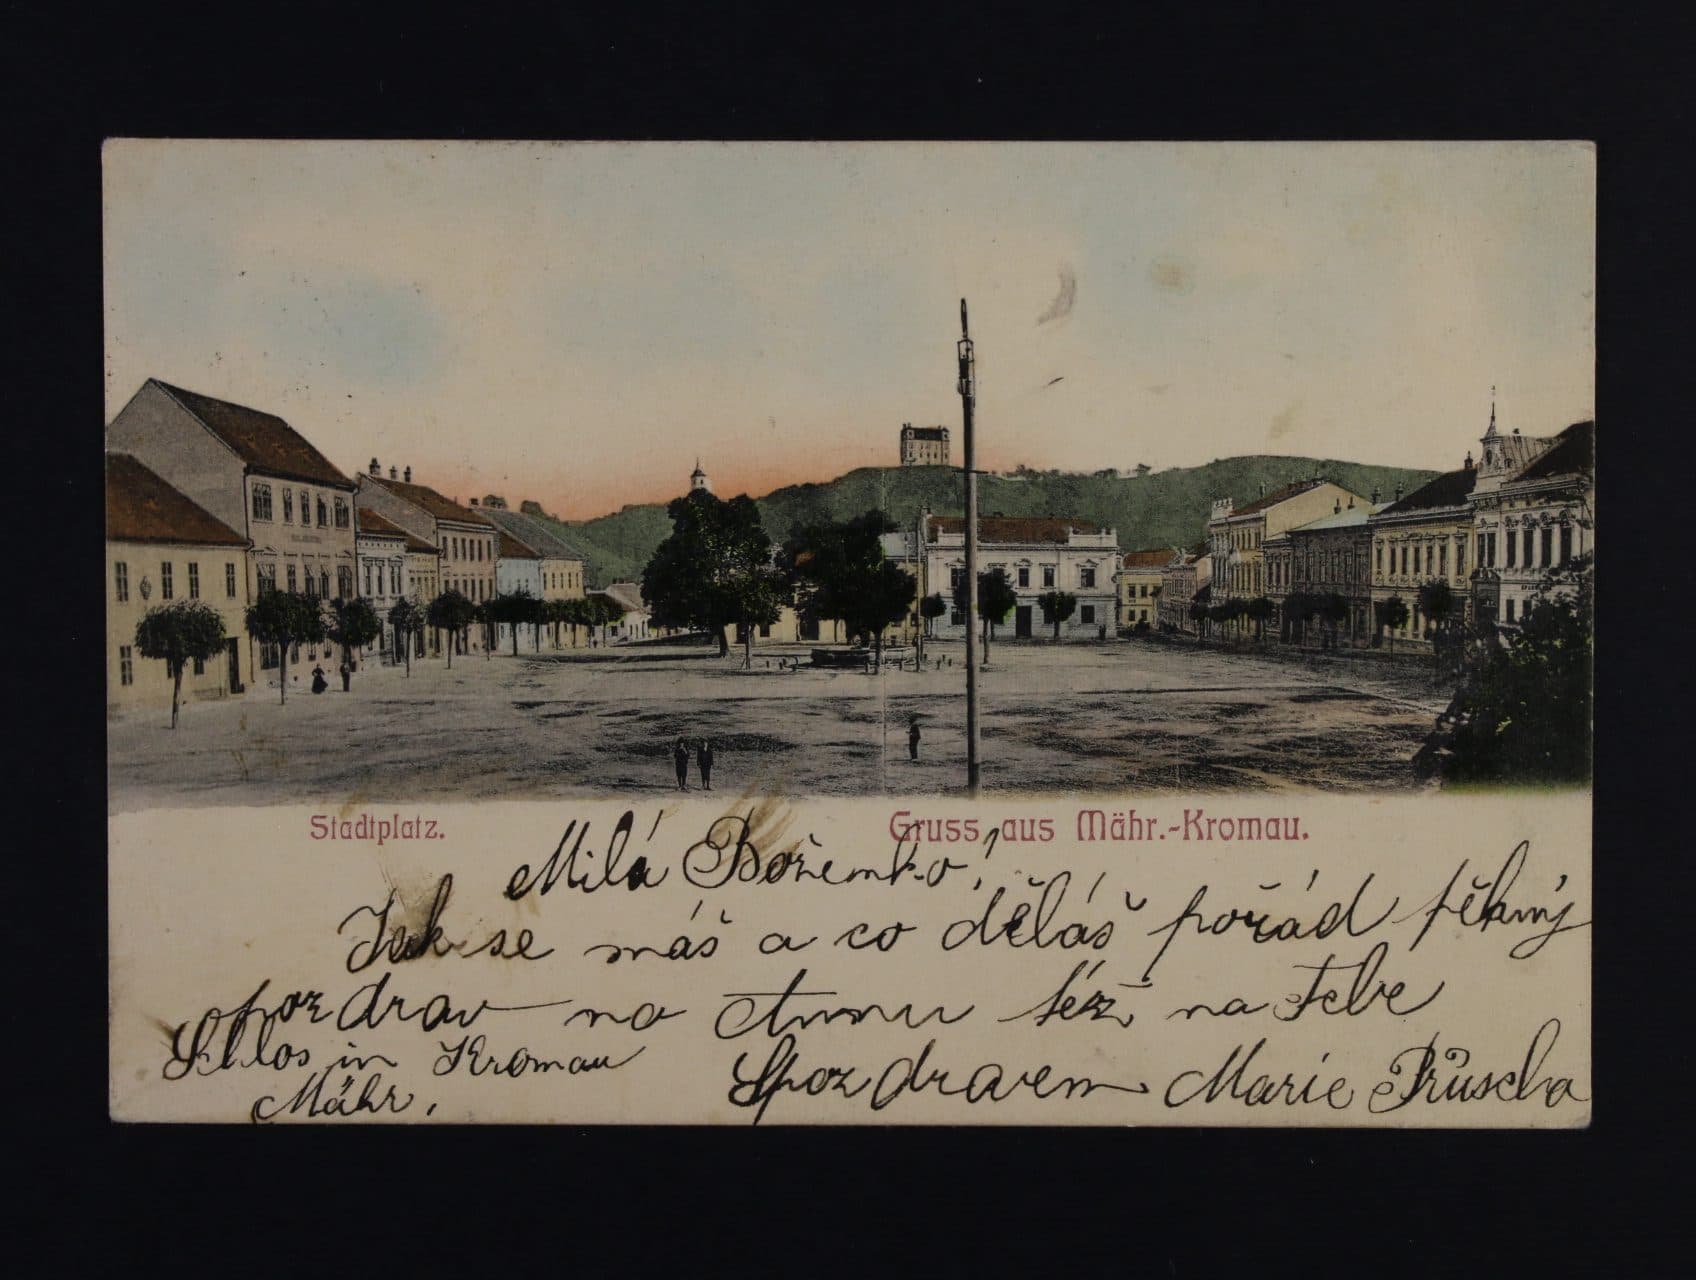 Stadtplatz.
Gruss aus Mähr.-Kromau.
Milá Boženko!
Jak se máš a co děláš pořád pěkný
pozdrav na Annu též na Tebe
Schlos in Kromau
Mähr.
Spozdravem Marie Průscha